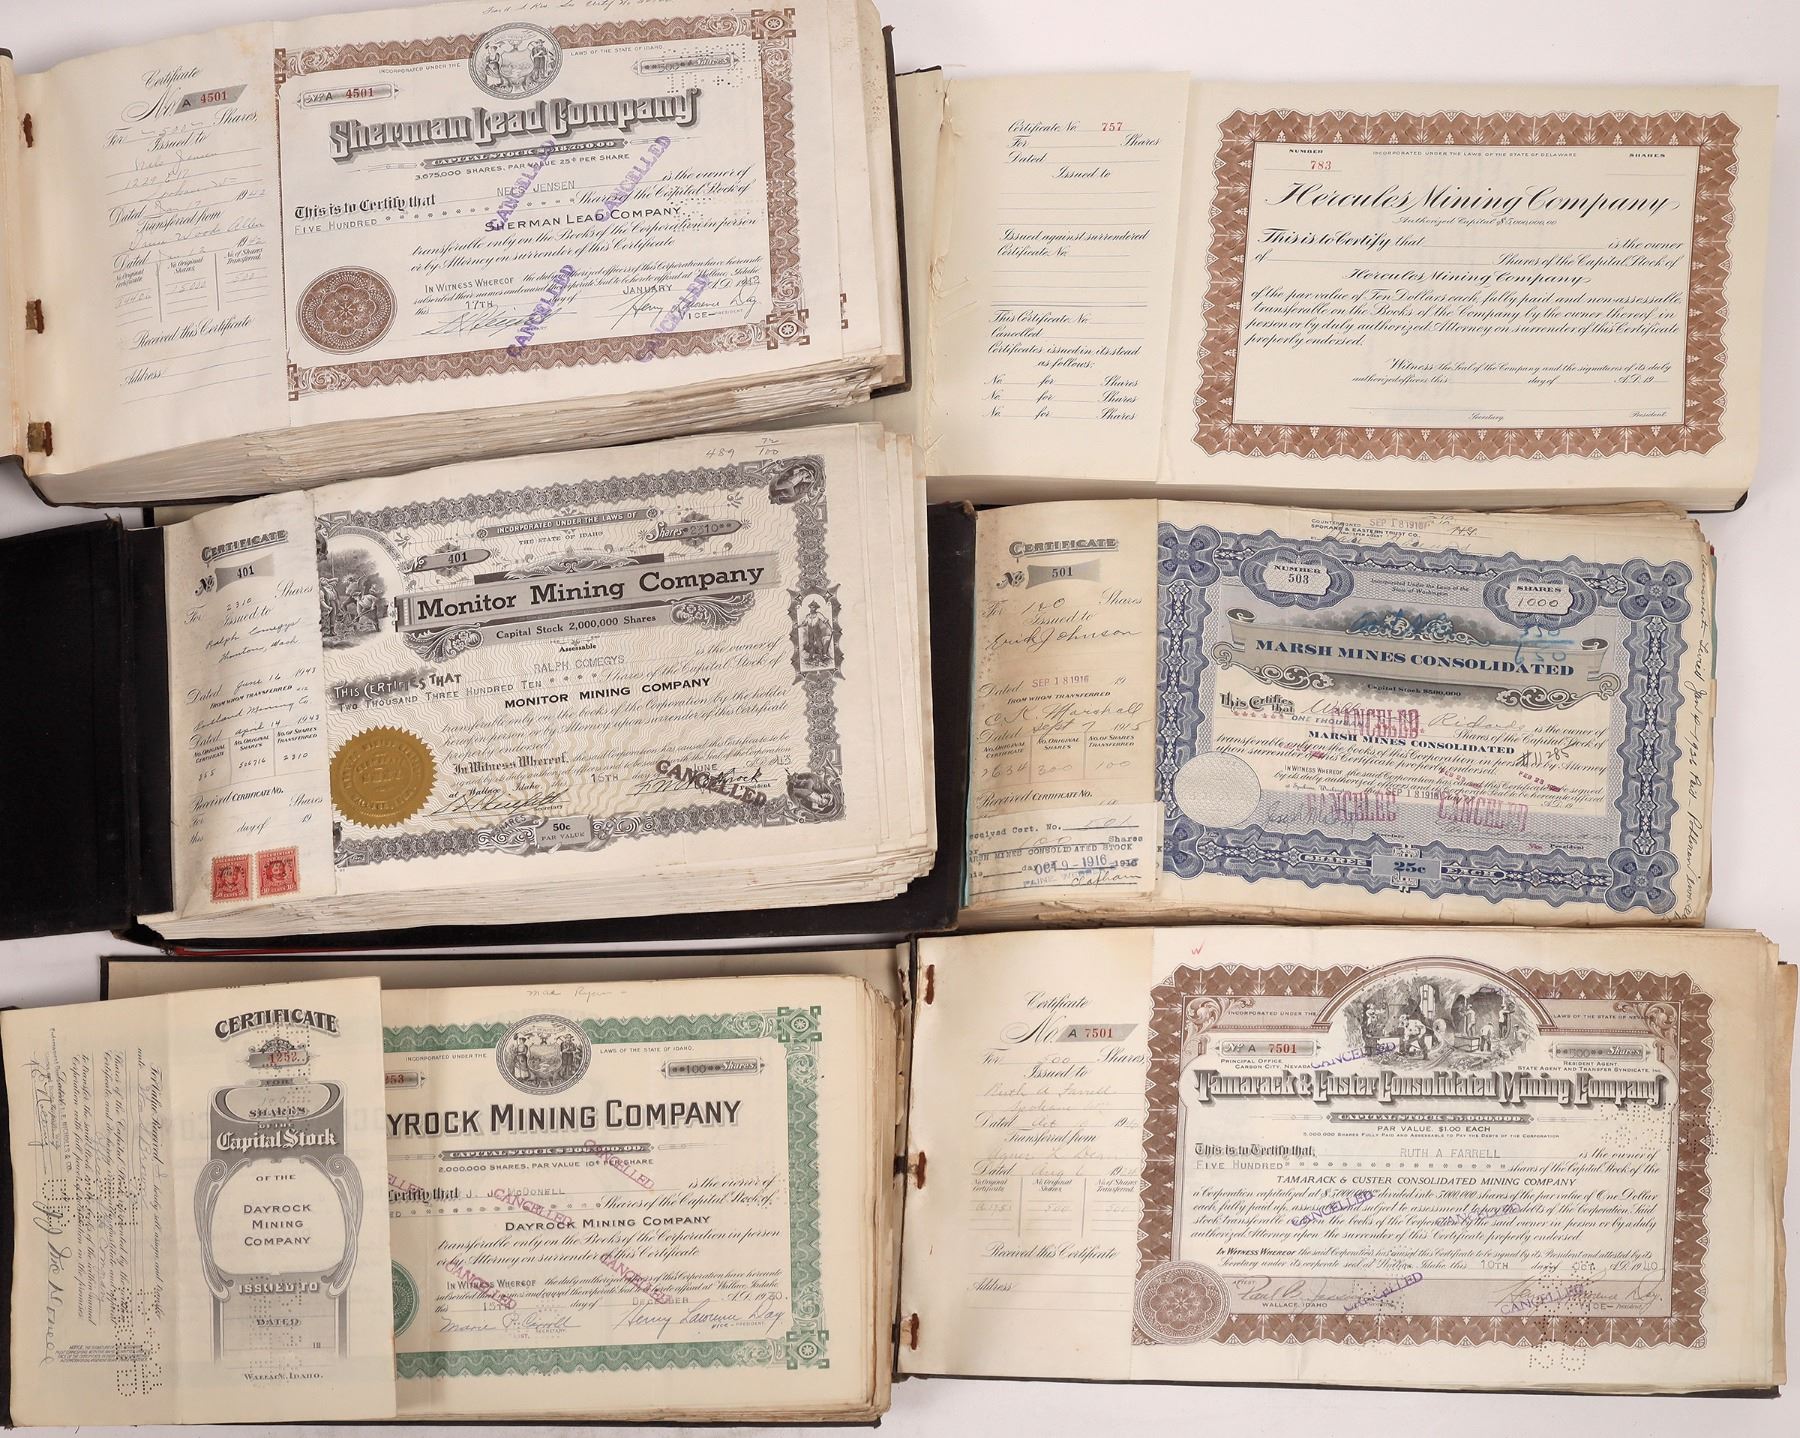 Certificate
No. A 4501
For 500 Shares,
Issued to
Nels Jensen
Dated
1942
Transferred from
Dated
1942
No. Original Certificate
No. Original Shares
No. of Shares Transferred
15000
500
Received this Certificate
Address
INCORPORATED UNDER THE
LAWS OF THE STATE OF IDAHO.
No. A 4501
500 Shares
Sherman Lead Company
CAPITAL STOCK $918,750.00
3,675,000 SHARES, PAR VALUE 25¢ PER SHARE
This is to Certify that NELS JENSEN is the owner of
FIVE HUNDRED Shares of the Capital Stock of
SHERMAN LEAD COMPANY
transferable only on the Books of the Corporation in person
or by Attorney on surrender of this Certificate
IN WITNESS WHEREOF the duly authorized officers of this Corporation have hereunto
subscribed their names and caused the corporate Seal to be hereto affixed at Wallace, Idaho
this 17TH day of JANUARY A.D. 1942
Henry Lawrence Day
VICE-PRESIDENT
CANCELLED
CANCELLED
CANCELLED
CANCELLED
Certificate No. 757
For Shares
Dated
Issued to
Issued against surrendered
Certificate No.
This Certificate No.
Cancelled
Certificates issued in its stead
as follows:
No. for Shares
No. for Shares
No. for Shares
NUMBER
783
INCORPORATED UNDER THE LAWS OF THE STATE OF DELAWARE
SHARES
Hercules Mining Company
Authorized Capital $5,000,000.00
This is to Certify that is the owner
of Shares of the Capital Stock of
Hercules Mining Company
of the par value of Ten Dollars each, fully paid and non-assessable
transferable on the Books of the Company by the owner thereof in
person or by duly authorized Attorney on surrender of this Certificate
properly endorsed.
Witness the Seal of the Company and the signatures of its duly
authorized officers this day of A.D. 19
Secretary.
President.
489 72/100
CERTIFICATE
No. 401
For 2310 Shares
Issued to
Ralph Comegys
Wash
Dated June 16 1943
FROM WHOM TRANSFERRED
Mining Co
Dated April 14 1943
NO. ORIGINAL CERTIFICATE
NO. ORIGINAL SHARES
NO. OF SHARES TRANSFERRED
355 506716 2310
Received CERTIFICATE NO.
For Shares
this day of 19
INCORPORATED UNDER THE LAWS OF
THE STATE OF IDAHO
No. 401
Shares **2310**
Monitor Mining Company
Capital Stock 2,000,000 Shares
Assessable
THIS CERTIFIES THAT RALPH COMEGYS is the owner of
TWO THOUSAND THREE HUNDRED TEN Shares of the Capital Stock of
MONITOR MINING COMPANY
transferable only on the books of the Corporation by the holder
hereof in person or by Attorney upon surrender of this Certificate
properly endorsed.
In Witness Whereof, the said Corporation has caused this Certificate to be
signed by its duly authorized officers and to be sealed with the Seal of the Corporation
at Wallace, Idaho this 15TH day of JUNE A.D. 1943
Secretary
President
CANCELLED
SHARES
50c
PAR VALUE
CERTIFICATE
No. 501
For 100 Shares
Issued to
Erick Johnson
Dated SEP 18 1916 19
FROM WHOM TRANSFERRED
Marshall
Dated Sept 7 1915
NO. ORIGINAL CERTIFICATE
NO. ORIGINAL SHARES
NO. OF SHARES TRANSFERRED
2634 300 100
Received CERTIFICATE NO.
Received Cert. No. 501
Shares
MARSH MINES CONSOLIDATED STOCK
OCT 9 - 1916
COUNTERSIGNED SEP 18 1916
SPOKANE & EASTERN TRUST CO.
NUMBER
503
Incorporated Under the Laws of the
State of Washington
SHARES
1000
MARSH MINES CONSOLIDATED
Capital Stock $500,000
This Certifies that Richards is the owner of
ONE THOUSAND Shares of the Capital Stock of
MARSH MINES CONSOLIDATED
transferable only on the books of the Corporation in person or by Attorney
upon surrender of this Certificate properly endorsed.
IN WITNESS WHEREOF the said Corporation has caused this Certificate to be signed
by its duly authorized officers and its Corporate Seal to be hereunto affixed
at Spokane, Washington this SEP 18 1916 A.D.
Secretary
Vice President
CANCELED
CANCELED
CANCELED
SHARES 25c EACH
CERTIFICATE
4252
FOR
100
SHARES
OF THE
Capital Stock
OF THE
DAYROCK
MINING
COMPANY
ISSUED TO
DATED
WALLACE, IDAHO.
For Value Received
INCORPORATED UNDER THE
LAWS OF THE STATE OF IDAHO.
253
**100** Shares
DAYROCK MINING COMPANY
CAPITAL STOCK $200,000.00
2,000,000 SHARES, PAR VALUE 10¢ PER SHARE
Certify that J. J. McDONELL is the owner of
Shares of the Capital Stock of
DAYROCK MINING COMPANY
transferable only on the Books of the Corporation in person
or by Attorney on surrender of this Certificate
IN WITNESS WHEREOF the duly authorized officers of this Corporation have hereunto
subscribed their names and caused the corporate Seal to be hereto affixed at Wallace, Idaho
this 15TH day of DECEMBER A.D. 1930
SECRETARY
Henry Lawrence Day
VICE-PRESIDENT
CANCELLED
CANCELLED
CANCELLED
CANCELLED
Certificate
No. A 7501
For 500 Shares,
Issued to
Ruth A Farrell
Spokane
Dated Oct 1940
Transferred from
Agnes L Dean
Dated Aug 6
No. Original Certificate
No. Original Shares
No. of Shares Transferred
500 500
Received this Certificate
Address
INCORPORATED UNDER THE
LAWS OF THE STATE OF NEVADA
No. A 7501
500 Shares
PRINCIPAL OFFICE,
CARSON CITY, NEVADA
RESIDENT AGENT
STATE AGENT AND TRANSFER SYNDICATE, INC.
Tamarack & Custer Consolidated Mining Company
CAPITAL STOCK $5,000,000.
PAR VALUE, $1.00 EACH
5,000,000 SHARES FULLY PAID AND ASSESSABLE TO PAY THE DEBTS OF THE CORPORATION
This is to Certify that, RUTH A FARRELL is the owner of
FIVE HUNDRED shares of the Capital Stock of the
TAMARACK & CUSTER CONSOLIDATED MINING COMPANY
a Corporation capitalized at $5,000,000.00 divided into 5,000,000 shares of the par value of One Dollar
each, fully paid up, assessable and subject to assessment to pay the debts of the Corporation. Said
stock transferable upon the books of the Corporation by the said owner in person or by a duly
authorized Attorney upon the surrender of this Certificate properly endorsed.
IN WITNESS WHEREOF the said Corporation has caused this Certificate to be signed by its President and attested by its
Secretary under its corporate seal at Wallace, Idaho this 10TH day of OCT. A.D. 1940
ATTEST
WALLACE, IDAHO
Henry Lawrence Day
VICE-PRESIDENT
CANCELLED
CANCELLED
CANCELLED
CANCELLED
CANCELLED